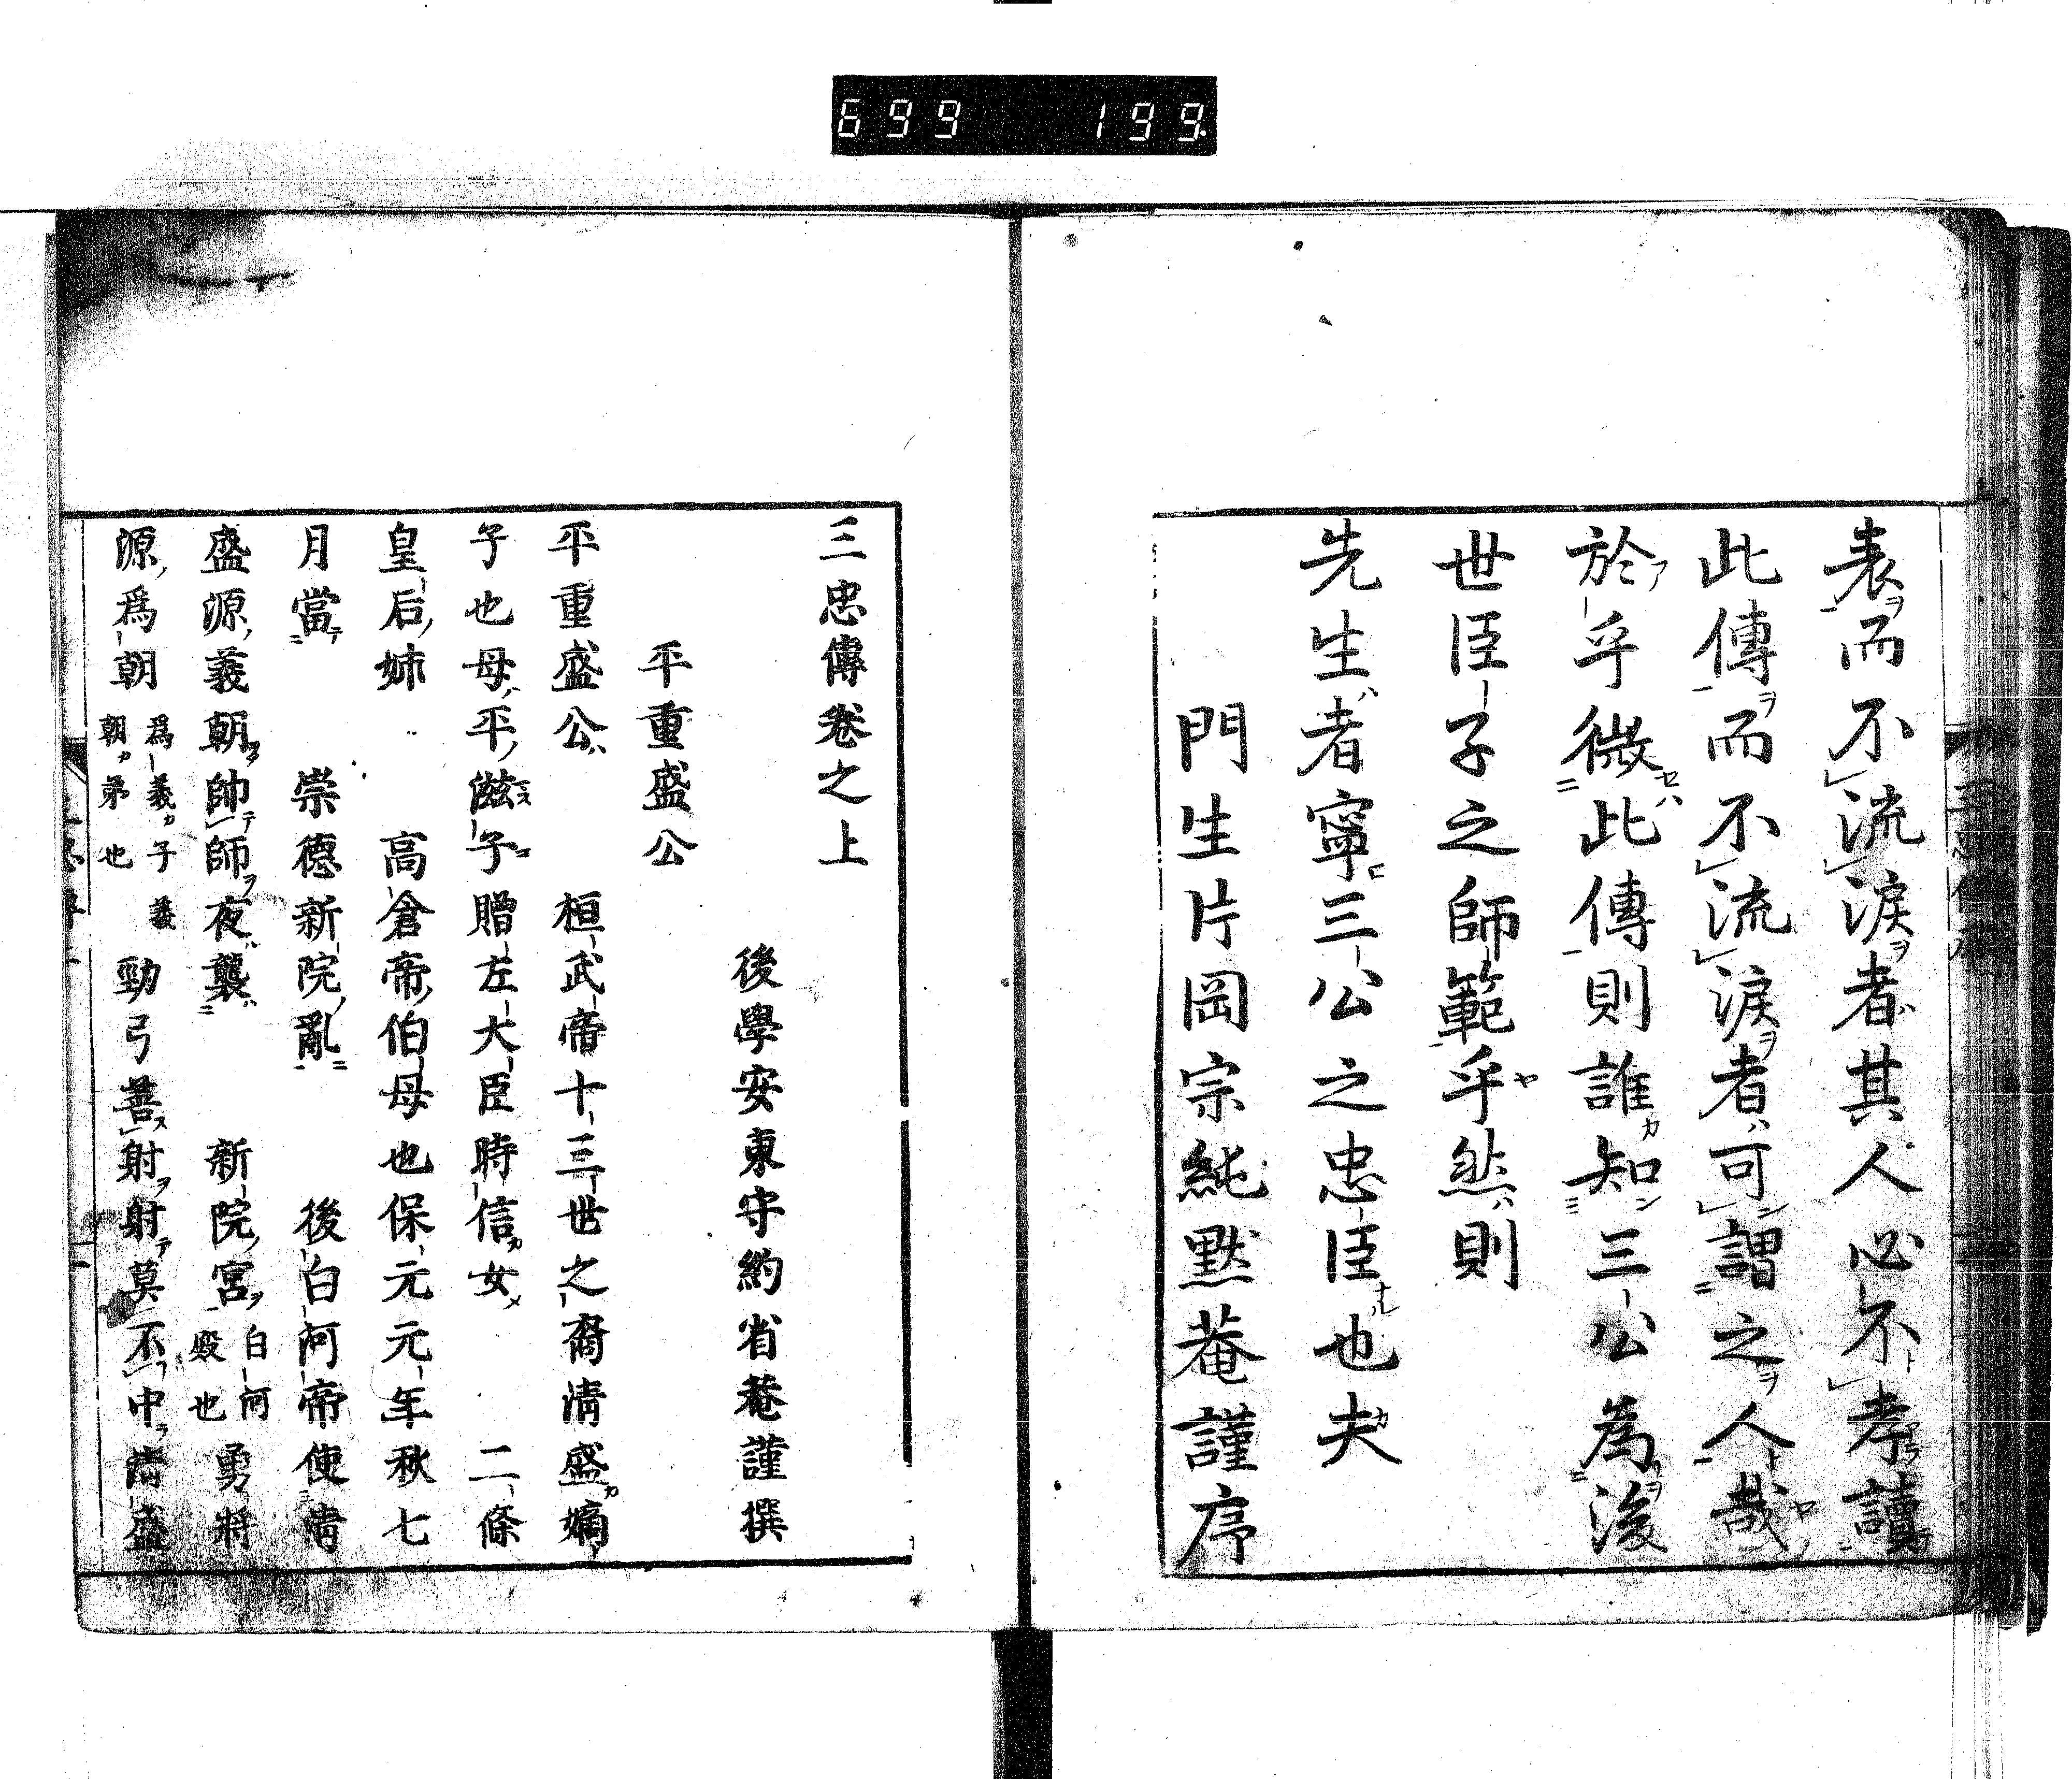 699 199
表而不流涙者其人必不孝讀
此傳而不流涙者可謂之人哉
於乎微此傳則誰知三公為後
世臣子之師範乎然則
先生者寧三公之忠臣也夫
門生片岡宗純黙菴謹序
三忠傳卷之上
後學安東守約省菴謹撰
平重盛公
平重盛公桓武帝十三世之裔清盛嫡
子也母平滋子贈左大臣時信女二條
皇后姉高倉帝伯母也保元元年秋七
月當崇德新院亂後白河帝使清
盛源義朝帥師夜襲新院宮白河殿也勇將
源爲朝爲義子義朝弟也勁弓善射射莫不中清盛